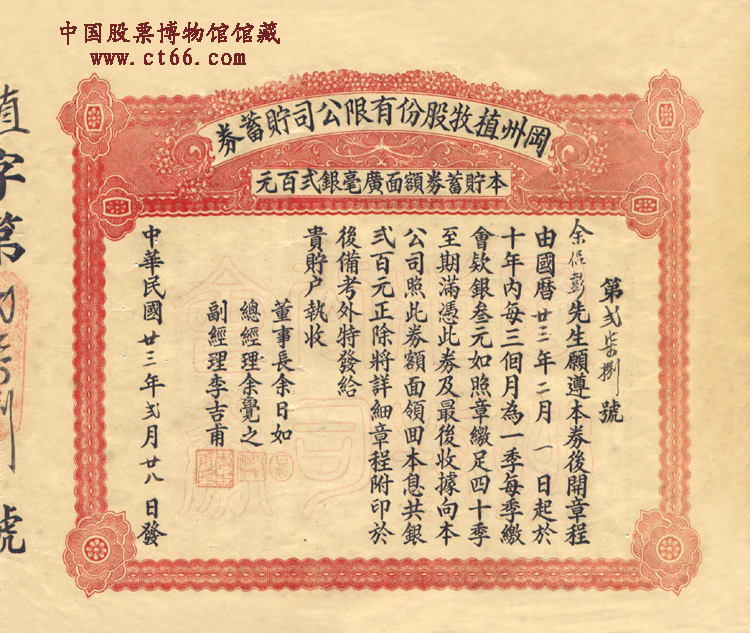 中国股票博物馆馆藏
www.ct66.com
岡州植牧股份有限公司貯蓄券
本貯蓄券額面廣毫銀弍百元
第弍柒捌號
余侣彭先生願遵本券後開章程
由國曆廿三年二月一日起於
十年內每三個月為一季每季繳
會欵銀叁元如照章繳足四十季
至期滿憑此券及最後收據向本
公司照此券額面領囬本息共銀
弍百元正除將詳細章程附印於
後備考外特發給
貴貯户執收
董事長余日如
總經理余覺之
副經理李吉甫
中華民國廿三年弍月廿八日發
植字第
號